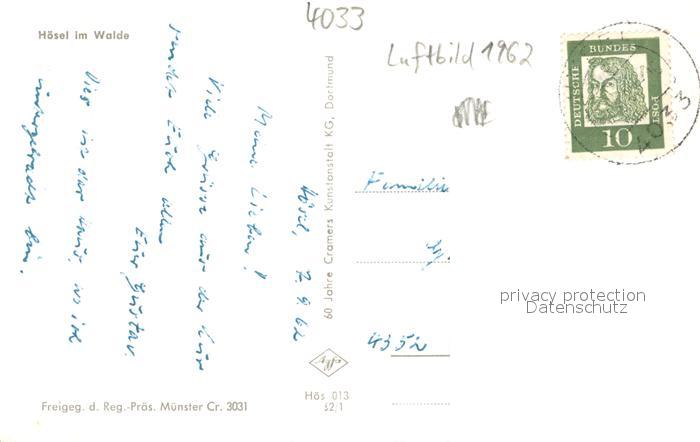 4033
Luftbild 1962
Hösel im Walde
Hösel, 7.9.62
Meine Lieben!
Viele Grüsse aus der Kur
sendet Euch allen
Euer Gustav.
Dies ist das Haus, wo ich
untergebracht bin.
60 Jahre Cramers Kunstanstalt KG, Dortmund
DEUTSCHE
BUNDES
POST
10
4033
Familie
4352
privacy protection
Datenschutz
Freigeg. d. Reg.-Präs. Münster Cr. 3031
Hös 013
52/1